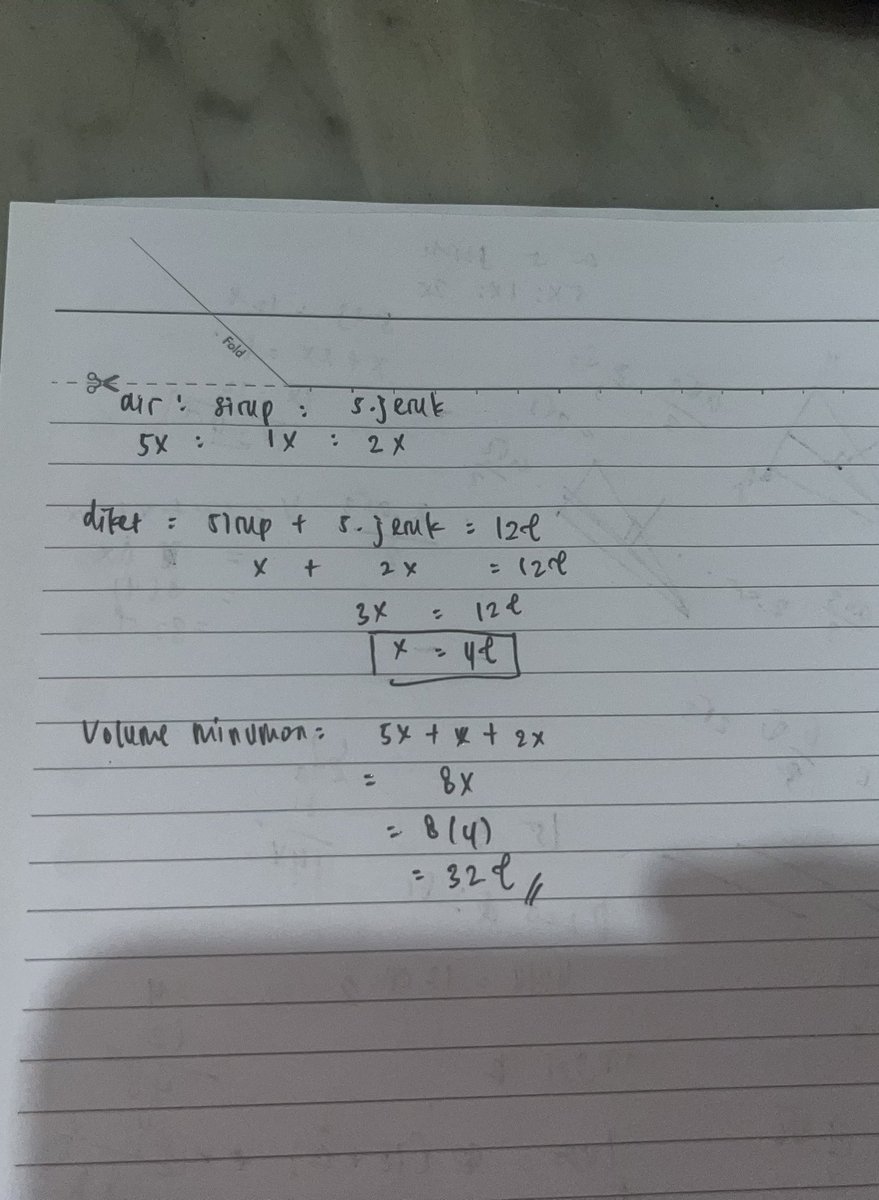 Fold
air : sirup : s.jeruk
5x : 1x : 2x
diket = sirup + s.jeruk = 12l
x + 2x = 12l
3x = 12l
x = 4l
Volume minuman = 5x + x + 2x
= 8x
= 8(4)
= 32l //